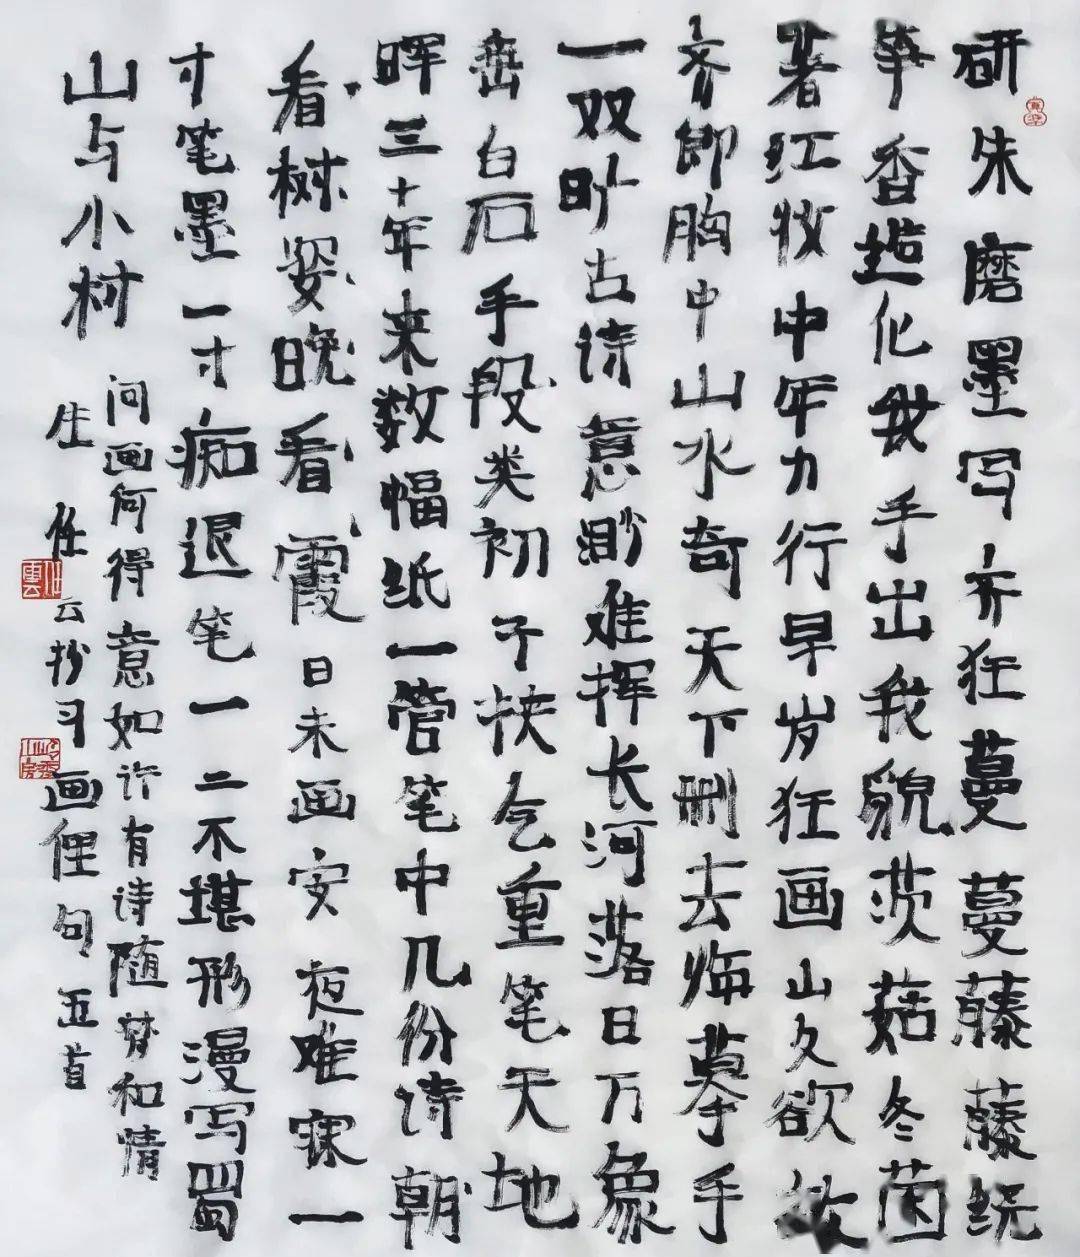 研朱磨墨写齐狂蔓蔓藤藤绕
笔香造化我手出我貌茨菇冬菌
著红妆中年力行早岁狂画山久欲
齐即胸中山水奇天下删去临摹手
一双旷古诗意渺难挥长河落日万象
峦白石手段类初子挟气重笔天地
晖三十年来数幅纸一管笔中几份诗朝
看树姿晚看霞日未画安夜难寐一
寸笔墨一寸痴退笔一二不堪形漫写蜀
山与小树
问画何得意如许有诗随梦和情
生 任云抄习画俚句五首